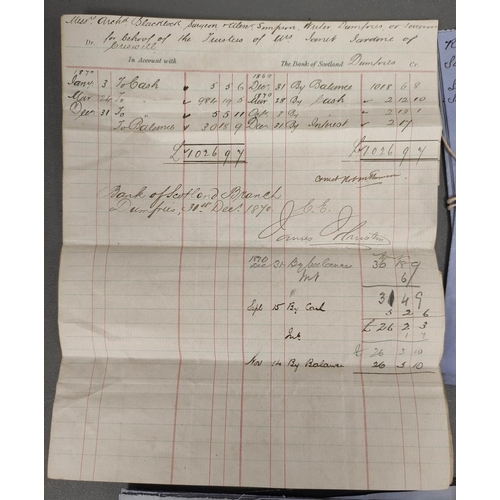 Mess.rs Arch.d Blacklock Surgeon & Adam Simpson Writer Dumfries
for behoof of the Trustees of Mrs Janet Jardone of
Dr. In Account with The Bank of Scotland Dumfries Cr.
1870 1869
Jany 3 To Cash 5 5 6 Dec 31 By Balance 1018 6 8
1870
Mar 26 To 986 19 5 Mar 28 By Cash 2 12 10
Dec 31 To 5 5 Sept 2 By
To Balance 30 18 9 Dec 31 By Interest 2 17
£1026 9 7 £1026 9 7
Bank of Scotland Branch
Dumfries, 31st Decr. 1870 E.E.
James
1870
Dec 31 By Balance 30 18 9
Int 6
31 4 9
Sept 15 By Cash 5 2 6
£ 26 2 3
Int 1 7
£ 26 3 10
Nov 14 By Balance 26 3 10